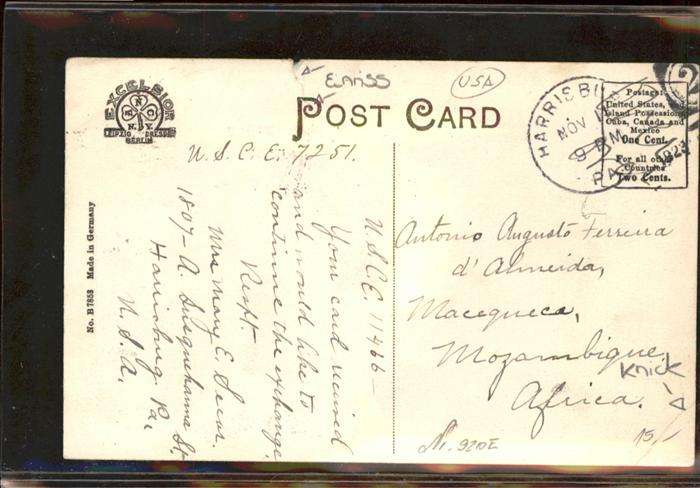 EXCELSIOR
N.Y.
LEIPZIG DRESDEN
BERLIN
No. B 7853 Made in Germany
EANSS
USA
POST CARD
HARRISBU
NOV
9 PM
PA.
1923
Postage:
United States, and
Island Possessions,
Cuba, Canada and
Mexico
One Cent.
For all other
Countries
Two Cents.
U. S. C. E. 7251.
U.S.C.E. 11466 –
Your card received
and would like to
continue the exchange.
Respt.
Mrs Mary E.
1807-A. Susquehanna St.
Harrisburg Pa.
U. S. A.
Antonio Augusto Ferreira
d'Almeida,
Macequeca,
Mozambique,
Africa.
Knick
Nr. 9210E
15,-